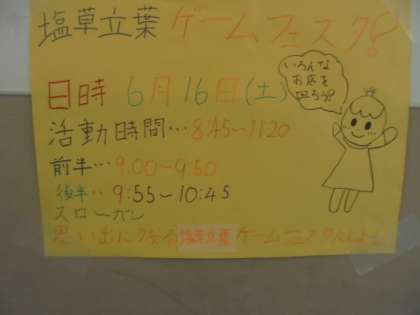 塩草立葉 ゲームフェスタ!
日時 6月16日(土)
活動時間…8:45~11:20
前半…9:00~9:50
後半…9:55~10:45
スローガン
思い出にのこる塩草立葉ゲームフェスタ
いろんな
お店を
回ろう!